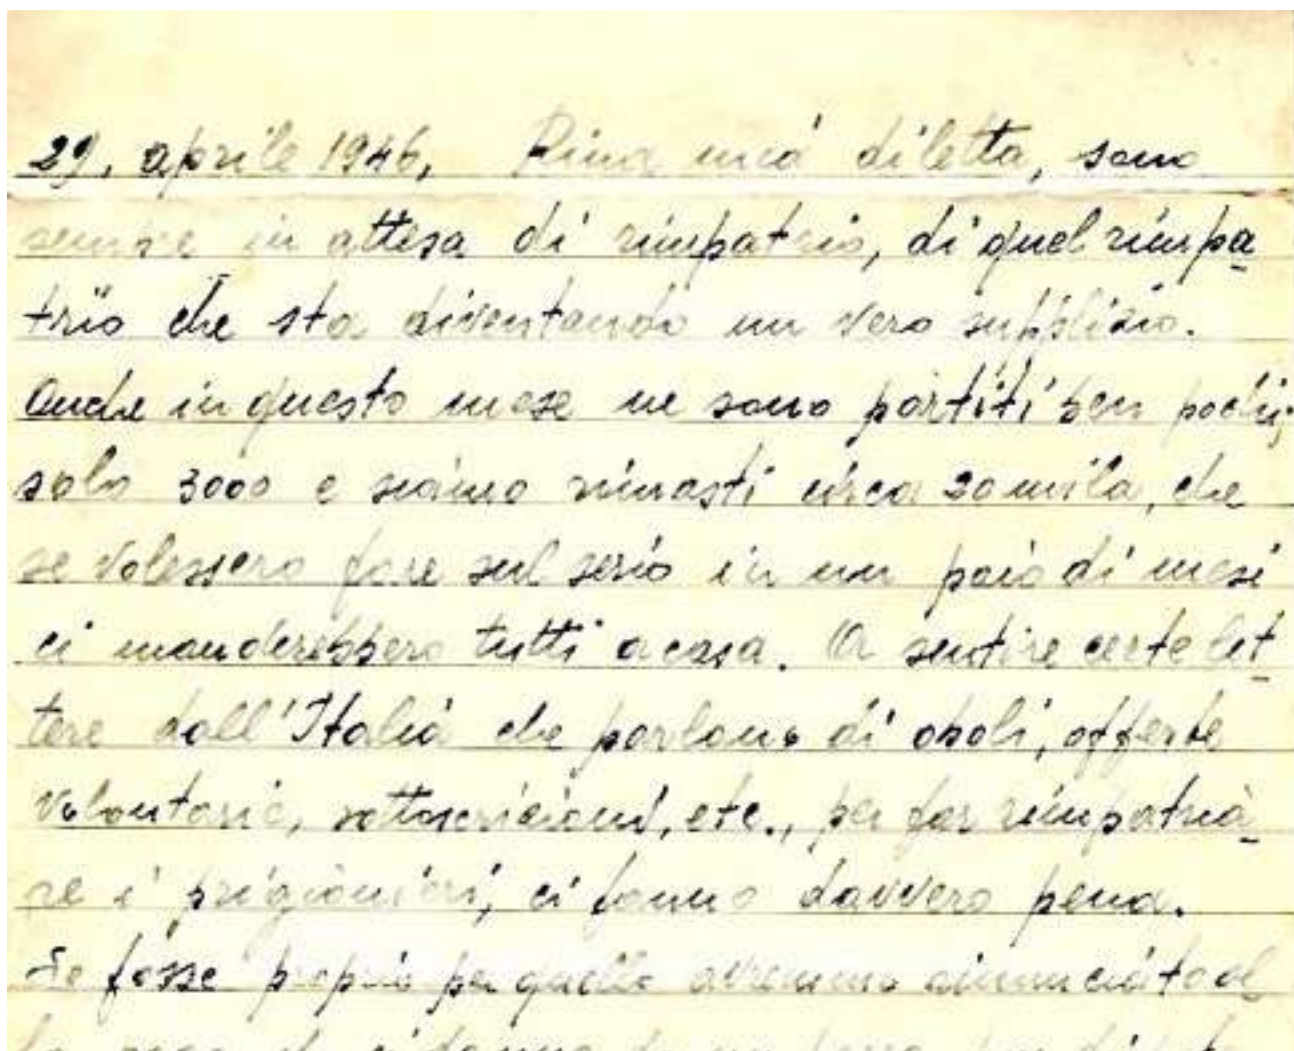 29, aprile 1946, Rina mia diletta, sono
sempre in attesa di rimpatrio, di quel rimpa-
trio che sta diventando un vero supplizio.
Anche in questo mese ne sono partiti ben pochi;
solo 3000 e siamo rimasti circa 20 mila, che
se volessero fare sul serio in un paio di mesi
ci manderebbero tutti a casa. A sentire certe let-
tere dall'Italia che parlano di oboli, offerte
volontarie, sottoscrizioni, etc., per far rimpatria-
re i prigionieri, ci fanno davvero pena.
Se fosse proprio per quello avremmo rinunciato al